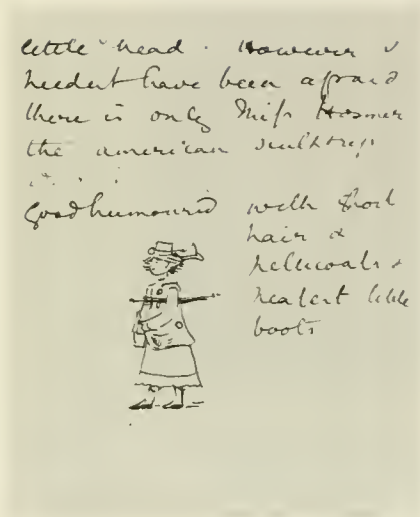 little head. However I
needent have been afraid
there is only Miss Hosmer
the american sculptress
Goodhumoured with short
hair &
petticoats &
neatest little
boots